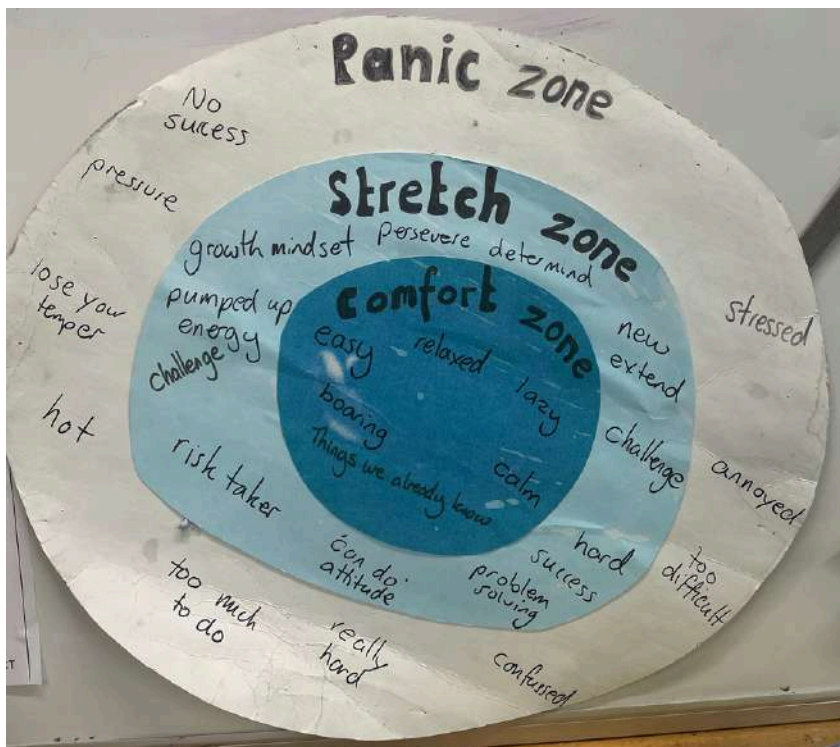 Panic zone
No
sucess
pressure
lose your
temper
hot
too much
to do
really
hard
confussed
too
difficult
annoyed
stressed
Stretch zone
growth mindset
Persevere
determind
pumped up
energy
challenge
risk taker
can do
attitude
problem
solving
success
hard
challenge
new
extend
Comfort zone
easy
relaxed
lazy
boaring
calm
Things we already know